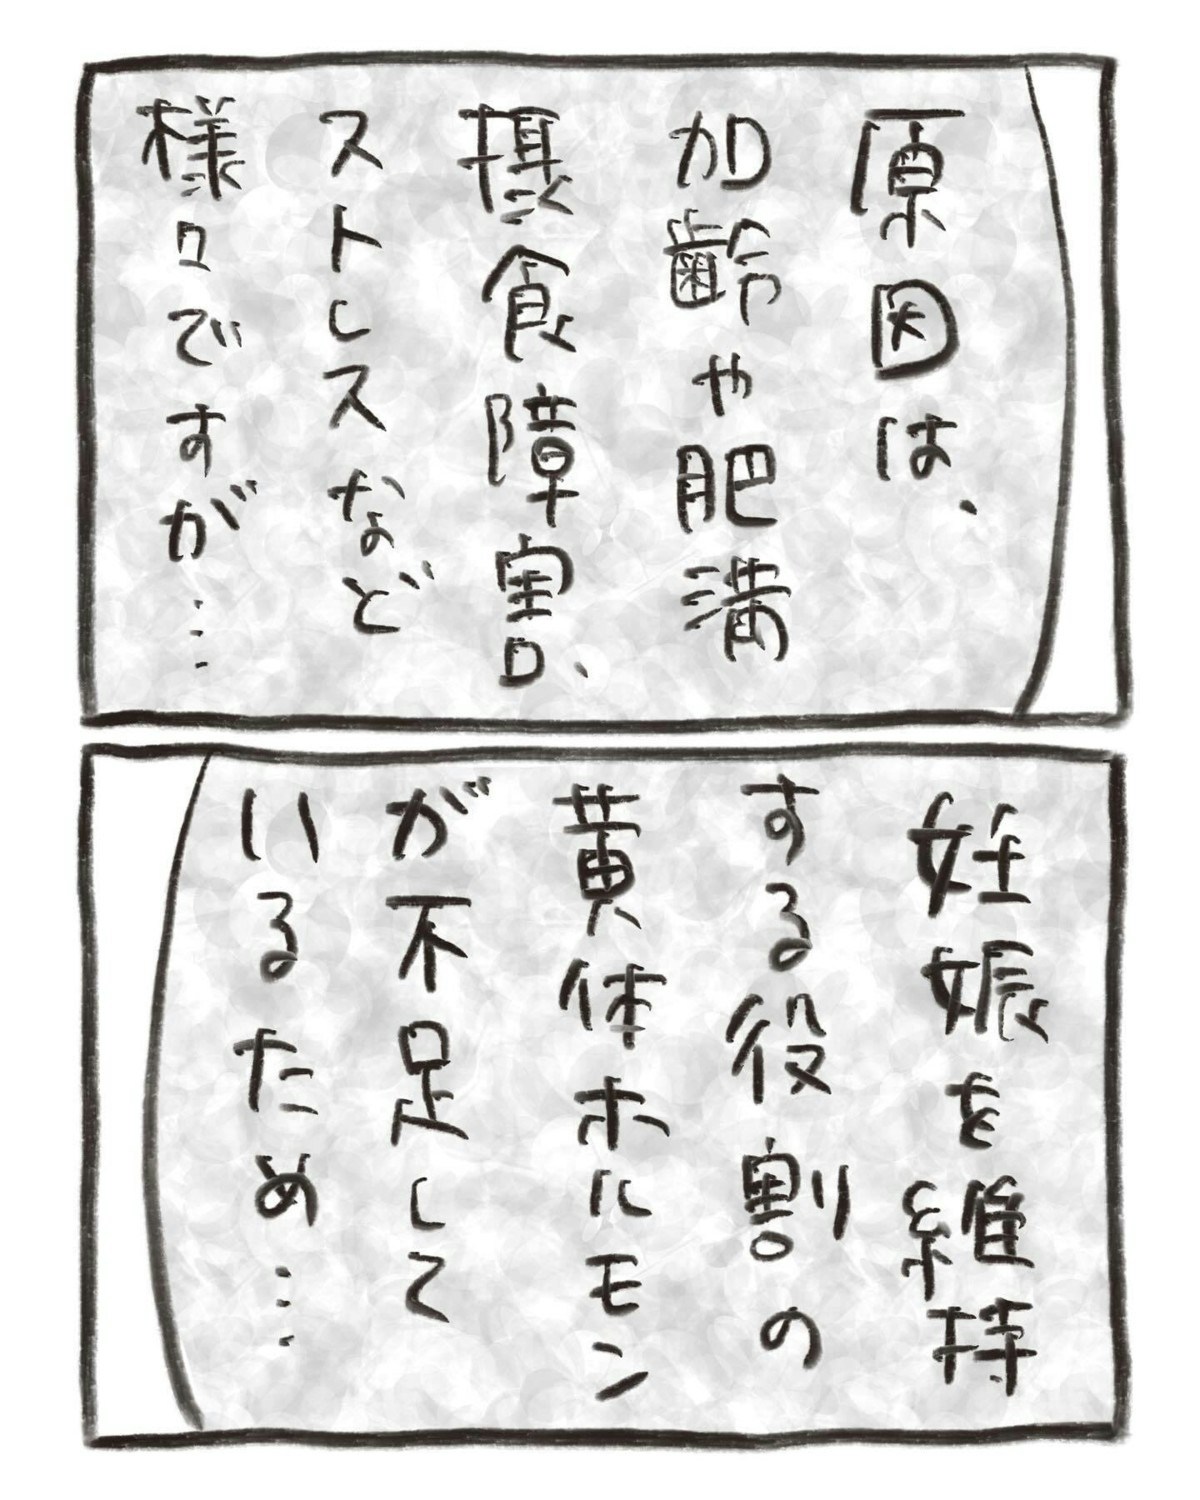 原因は、
加齢や肥満
摂食障害、
ストレスなど
様々ですが…
妊娠を維持
する役割の
黄体ホルモン
が不足して
いるため…